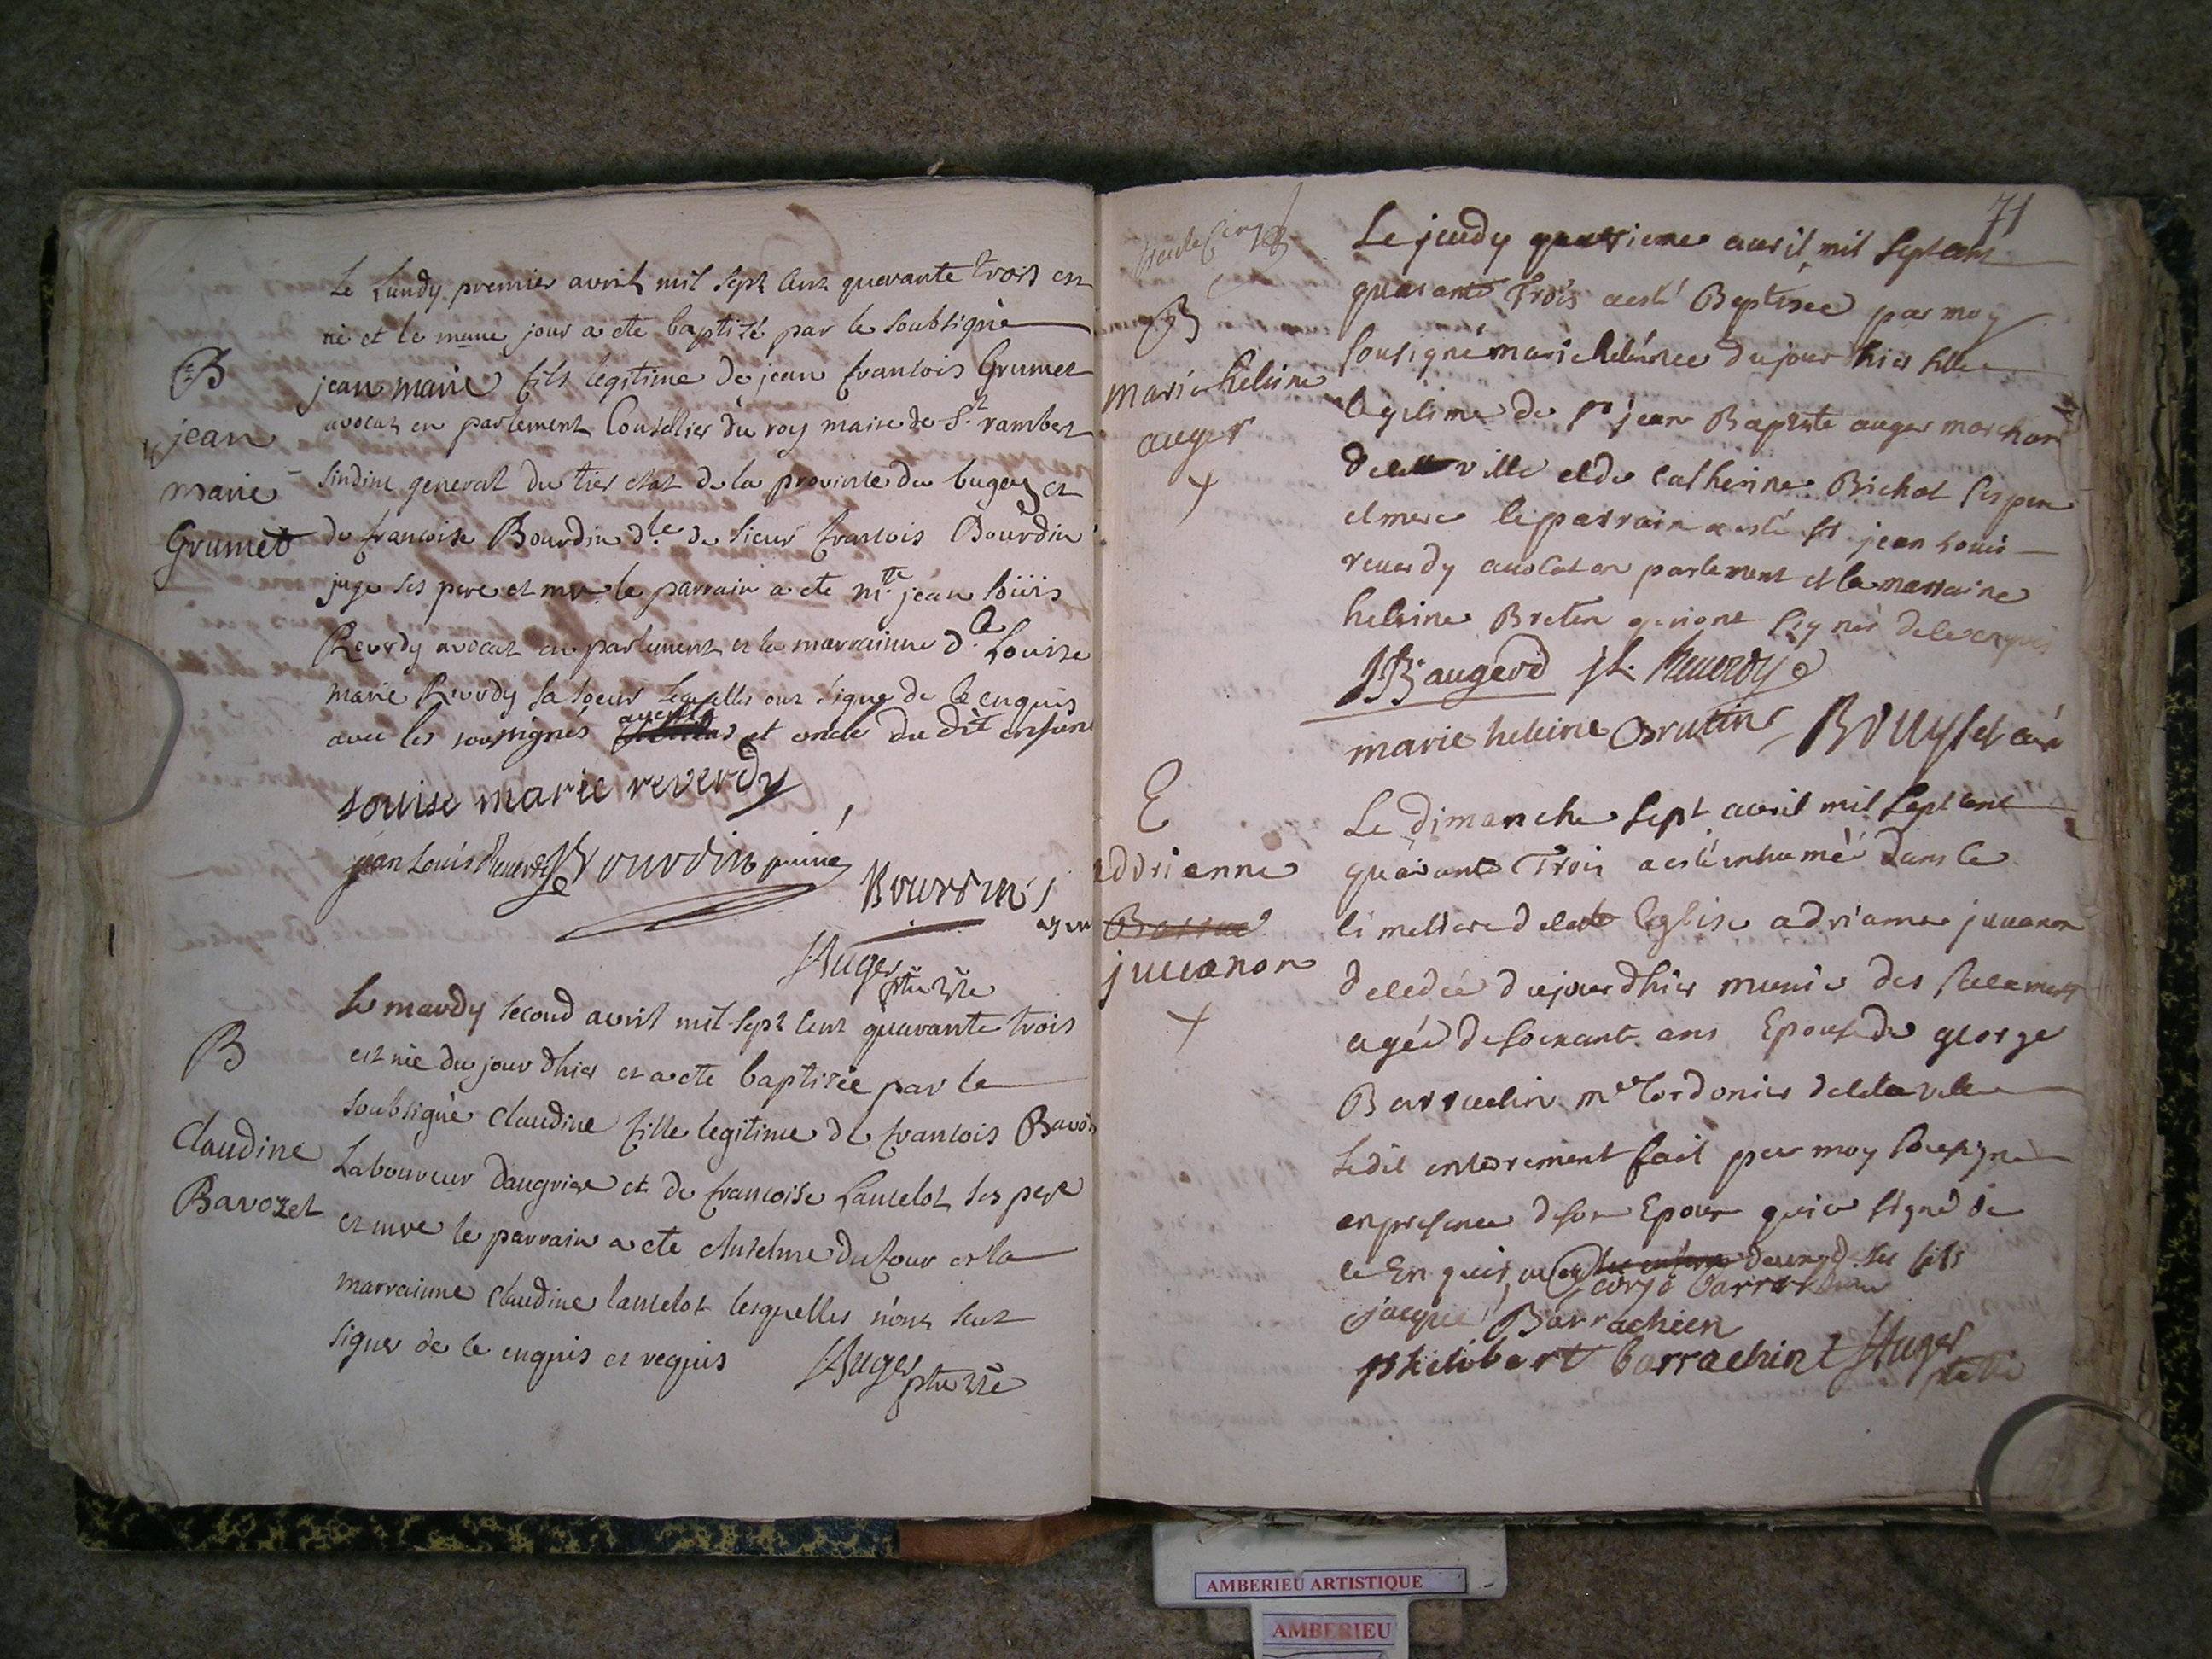 Le Lundy premier avril mil sept cent quarante trois est
né et le meme jour a ete baptisé par le soubsigné
B
jean
marie
Grumet
jean marie fils legitime de jean francois Grumet
avocat en parlement Conseiller du roy maire de St rambert
sindic general du tier etat de la province du bugey et
de francoise Bourdin dle de sieur francois Bourdin
juge ses pere et mere le parrain a ete mre jean loüis
Reverdy avocat en parlement et la marrainne dle Louise
marie Reverdy sa soeur lesquelles ont signé de ce enquis
avec les soussignés et oncle du dit enfant
Louise marie reverdy
jean Louis Reverdy Bourdin
Bourdin
Auger ptre vre
B
Claudine
Bavozet
Le mardy second avril mil sept cent quarante trois
est née du jour dhier et a ete baptisée par le
soubsigné Claudine fille legitime de francois Bavozet
Laboureur daugrier et de francoise Lancelot ses pere
et mere le parrain a ete anselme dufour et la
marrainne Claudine lancelot lesquelles n'ont sceu
signer de ce enquis et requis
Auger ptre vre
71
B
marie heleine
auger
+
Le jeudy quatrieme avril mil sept cent
quarante Trois a esté Baptisee par moy
sousigné marie heleine née du jour hier fille
legitime de sr jean Baptiste auger marchand
de cette ville et de Catherine Bichat ses pere
et mere le parrain a esté sr jean Louis
reverdy avocat en parlement et la marraine
heleine Breton qui ont signés de ce enquis
JB augerd JL Reverdy
marie heleine Bouysset curé
E
addrienne
juvanon
+
Le dimanche sept avril mil sept cent
quarante Trois a esté inhumé dans le
cimettiere de cette Eglise adrianne juvanon
decedée du jour dhier munie des sacrements
agée de soixante ans Epouse de george
Barrachin me Cordonier de cette ville
ledit enterrement fait par moy sousigné
en presence de son Epoux qui a signé de
ce Enquis avec ses fils
George barrachin
jacque Barrachien
philibert barrachint Auger